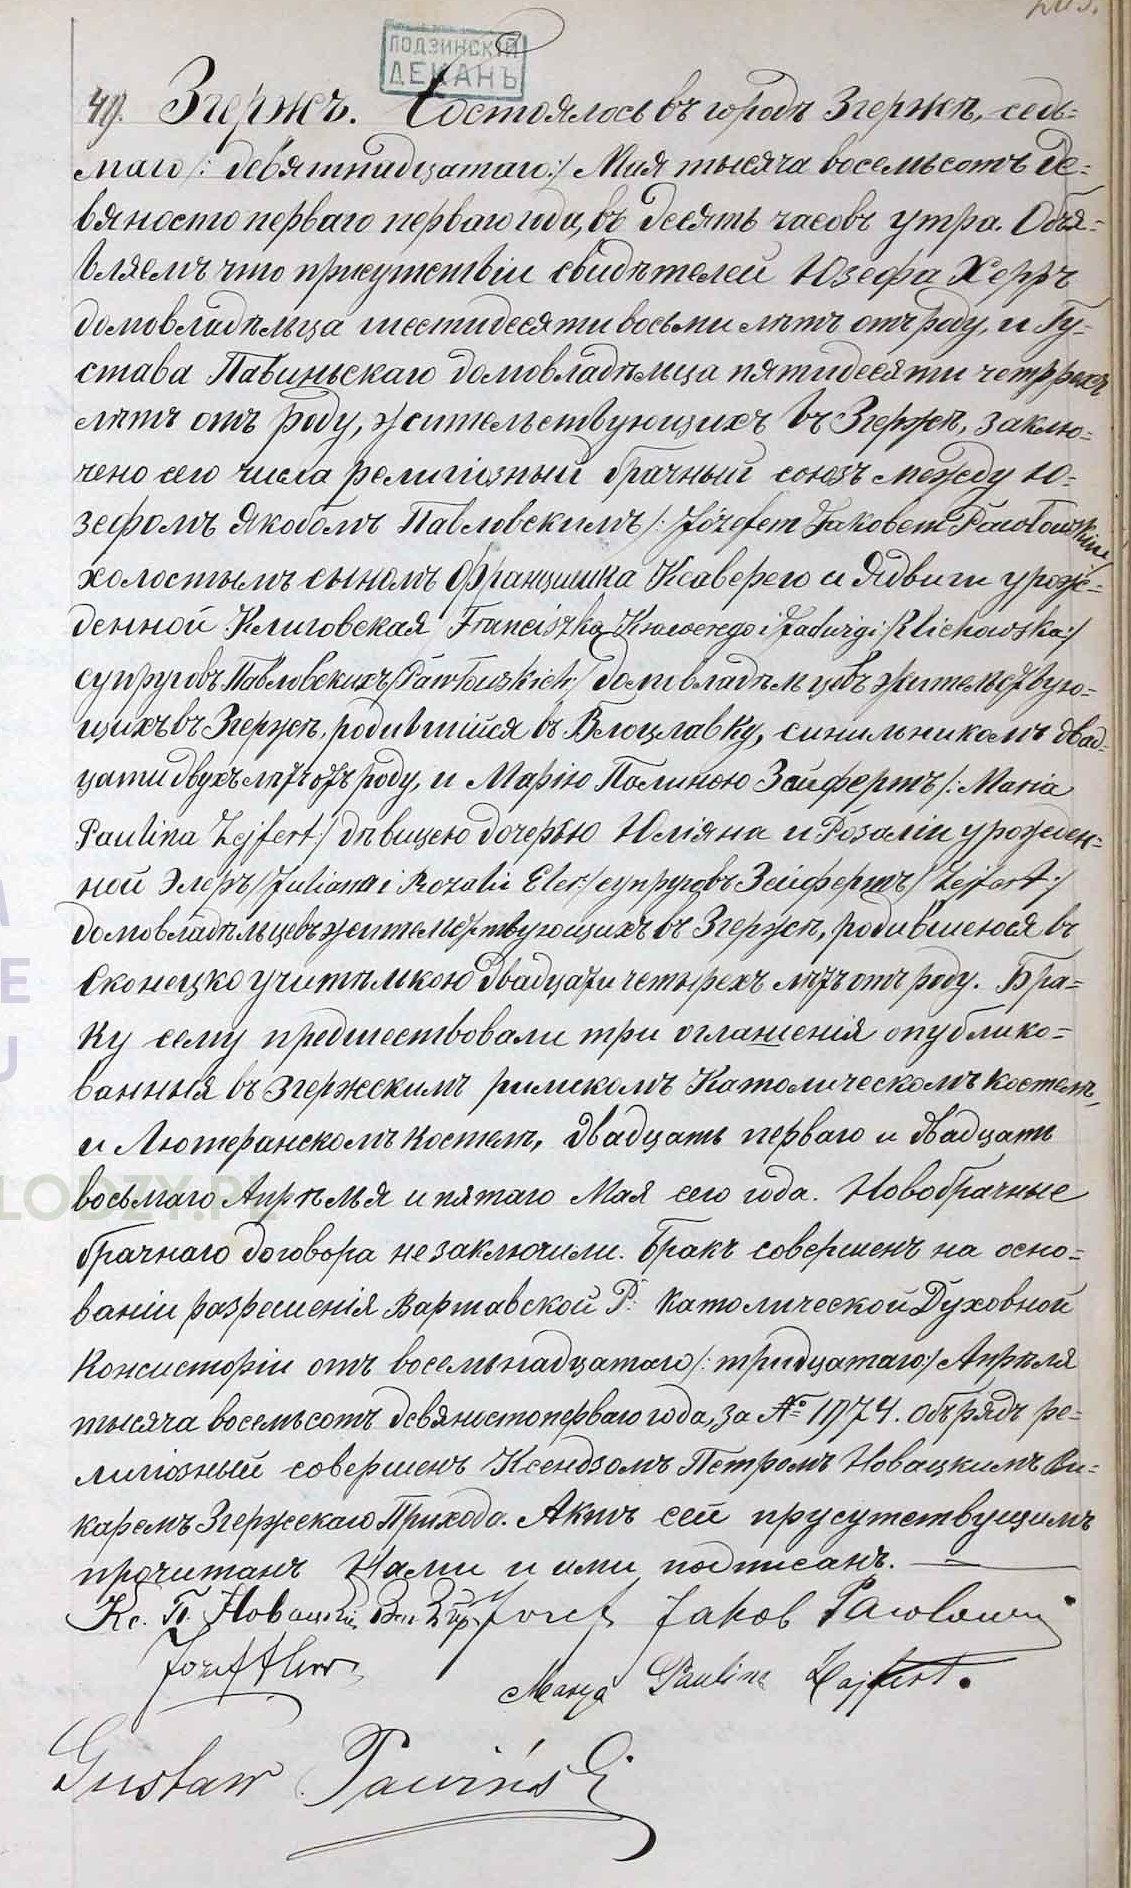 ЛОДЗИНСКІЙ
ДЕКАНЪ
49. Згержъ. Состоялось въ городѣ Згержѣ, седь-
маго /: девятнадцатаго:/ Мая тысяча восемьсотъ де-
вяносто перваго перваго года, въ десять часовъ утра. Объя-
вляемъ что присутствіи свидѣтелей Юзефа Херръ
домовладѣльца шестидесяти восьми лѣтъ отъ роду, и Гу-
става Павиньскаго домовладѣльца пятидесяти четырехъ
лѣтъ отъ роду, жительствующихъ въ Згержѣ, заклю-
чено сего числа религіозный брачный союзъ между Ю-
зефомъ Якобомъ Павловскимъ /: Józefem Jakobem Pawłowskim
холостымъ сыномъ Францишка Ксаверего и Ядвиги урож-
денной Клиховская Franciszka Ksawerego i Jadwigi Klichowska:/
супруговъ Павловскихъ /Pawłowskich:/ домовладѣльцевъ жительствую-
щихъ въ Згержѣ, родившійся въ Влоцлавку, синильникомъ двад-
цати двухъ лѣтъ отъ роду, и Марію Полиною Зайфертъ /: Maria
Paulina Zejfert:/ дѣвицею дочерью Юліяна и Розаліи урожден-
ной Элеръ /Juliana i Rozalii Eler:/ супруговъ Зейфертъ /Zejfert:/
домовладѣльцевъ жительствующихъ въ Згержѣ, родившеюся въ
Сконецко учителькою двадцати четырехъ лѣтъ отъ роду. Бра-
ку сему предшествовали три оглашенія опублико-
ванныя въ Згержскимъ римскомъ Католическомъ костелѣ,
и Лютеранскомъ костелѣ, двадцать перваго и двадцать
восьмаго Апрѣля и пятаго Мая сего года. Новобрачные
брачнаго договора не заключили. Бракъ совершенъ на осно-
ваніи разрешенія Варшавской Р: Католической Духовной
Консисторіи отъ восемьнадцатаго /: тридцатаго:/ Апрѣля
тысяча восемьсотъ девяносто перваго года, за № 1974. Обрядъ ре-
лигіозный совершенъ Ксендзомъ Петромъ Новацкимъ Ви-
каремъ Згержскаго Прихода. Актъ сей прусутствущимъ
прочитанъ Нами и ими подписанъ.
Кс. П. Новацкій Józef Jakob Pawłowski
Józef Herr
Marya Paulina Zajfert.
Gustaw Pawiński